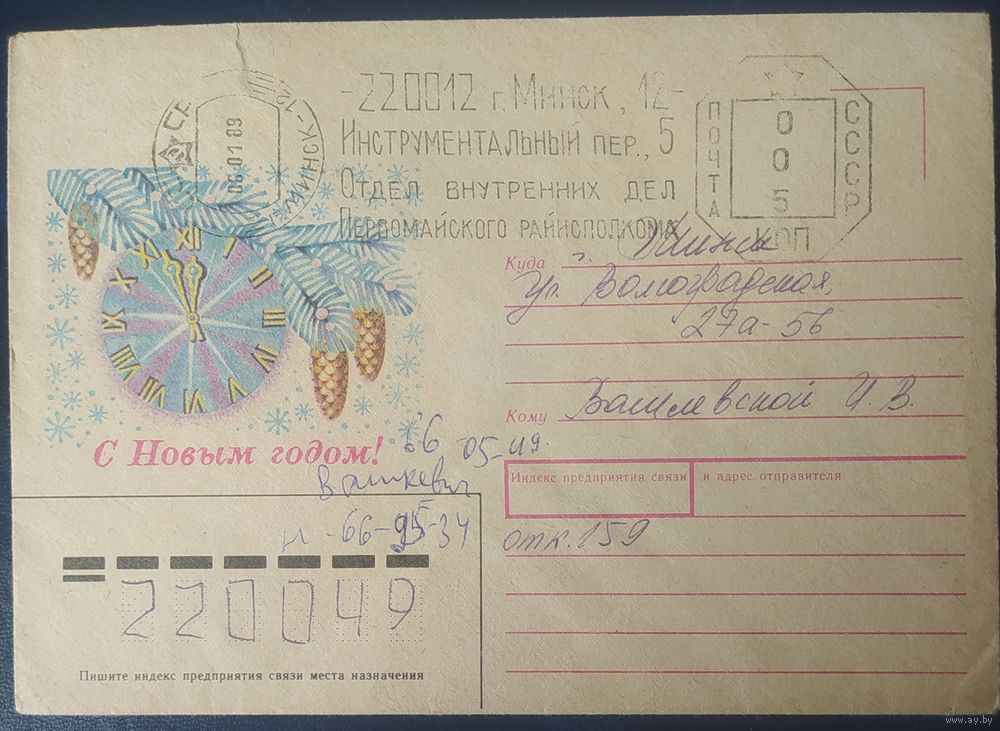 -220012 г. Минск, 12-
Инструментальный пер., 5
Отдел внутренних дел
Первомайского райисполкома
ПОЧТА
СССР
005
КОП
06.01.89
МИНСК-
XII I II III IIII V VI VII VIII IX X XI
С Новым годом!
Куда г. Минск
ул. Волгоградская,
27а-56
Кому Василевской И. В.
05-49.
Вашкевич
66-95-34
Индекс предприятия связи и адрес отправителя
отк. 159
220049
Пишите индекс предприятия связи места назначения
www.ay.by